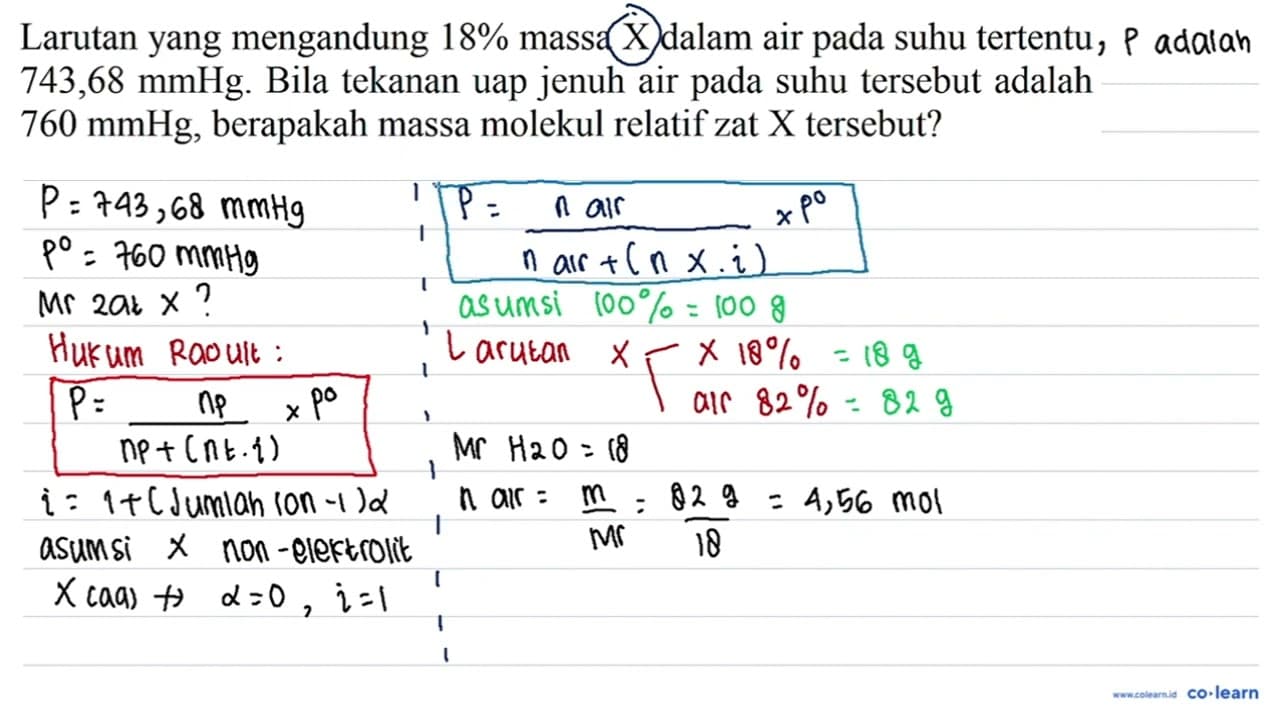 Larutan yang mengandung 18% massa X dalam air pada suhu tertentu, P adalah
743,68 mmHg. Bila tekanan uap jenuh air pada suhu tersebut adalah
760 mmHg, berapakah massa molekul relatif zat X tersebut?
P = 743,68 mmHg
P° = 760 mmHg
Mr zat X ?
Hukum Raoult :
P = np / np + (nt . i) x P°
i = 1 + (Jumlah ion - 1) α
asumsi X non-elektrolit
X (aq) → α = 0, i = 1
P = n air / n air + (n X . i) x P°
asumsi 100% = 100 g
Larutan X
X 18% = 18 g
air 82% = 82 g
Mr H2O = 18
n air = m / Mr = 82 g / 18 = 4,56 mol
www.colearn.id co·learn